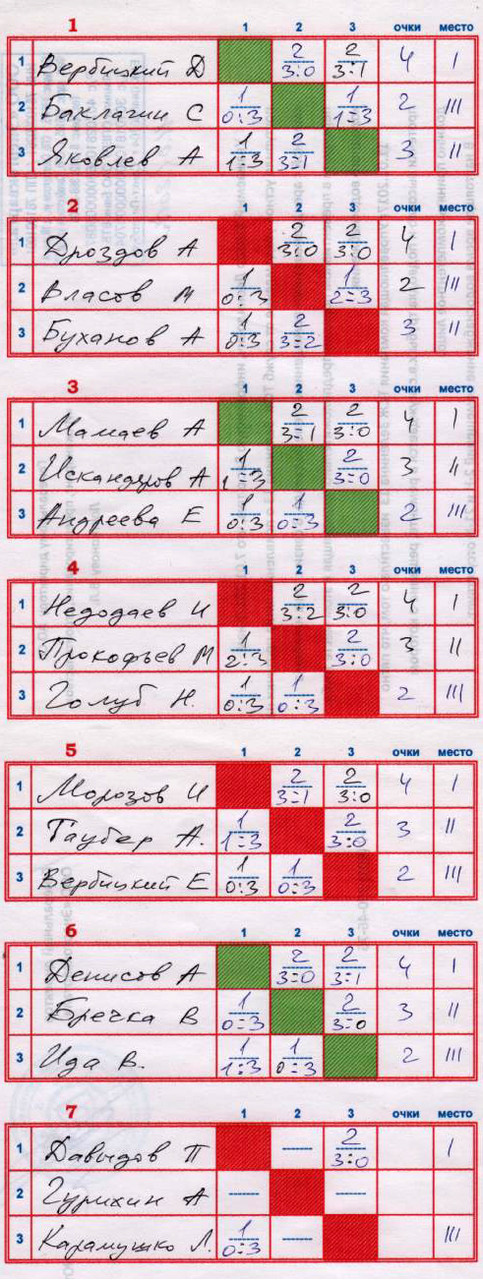 1 1 2 3 очки место
1 Вербицкий Д 2 3:0 2 3:1 4 I
2 Баклагин С 1 0:3 1 1=3 2 III
3 Яковлев А 1 1=3 2 3=1 3 II
2 1 2 3 очки место
1 Дроздов А 2 3:0 2 3:0 4 I
2 Власов М 1 0:3 1 2=3 2 III
3 Буханов А 1 0:3 2 3=2 3 II
3 1 2 3 очки место
1 Мамаев А 2 3=1 2 3:0 4 I
2 Искандяров А 1 1=3 2 3=0 3 II
3 Андреева Е 1 0:3 1 0=3 2 III
4 1 2 3 очки место
1 Недодаев И 2 3:2 2 3:0 4 I
2 Прокофьев М 1 2:3 2 3:0 3 II
3 Голуб Н. 1 0:3 1 0:3 2 III
5 1 2 3 очки место
1 Морозов И 2 3=1 2 3:0 4 I
2 Таубер А. 1 1=3 2 3:0 3 II
3 Вербицкий Е 1 0:3 1 0=3 2 III
6 1 2 3 очки место
1 Денисов А 2 3=0 2 3:1 4 I
2 Бречка В 1 0=3 2 3=0 3 II
3 Ида В. 1 1:3 1 0=3 2 III
7 1 2 3 очки место
1 Давыдов П — 2 3:0 I
2 Гурихин А — —
3 Карамушко Л. 1 0:3 — III